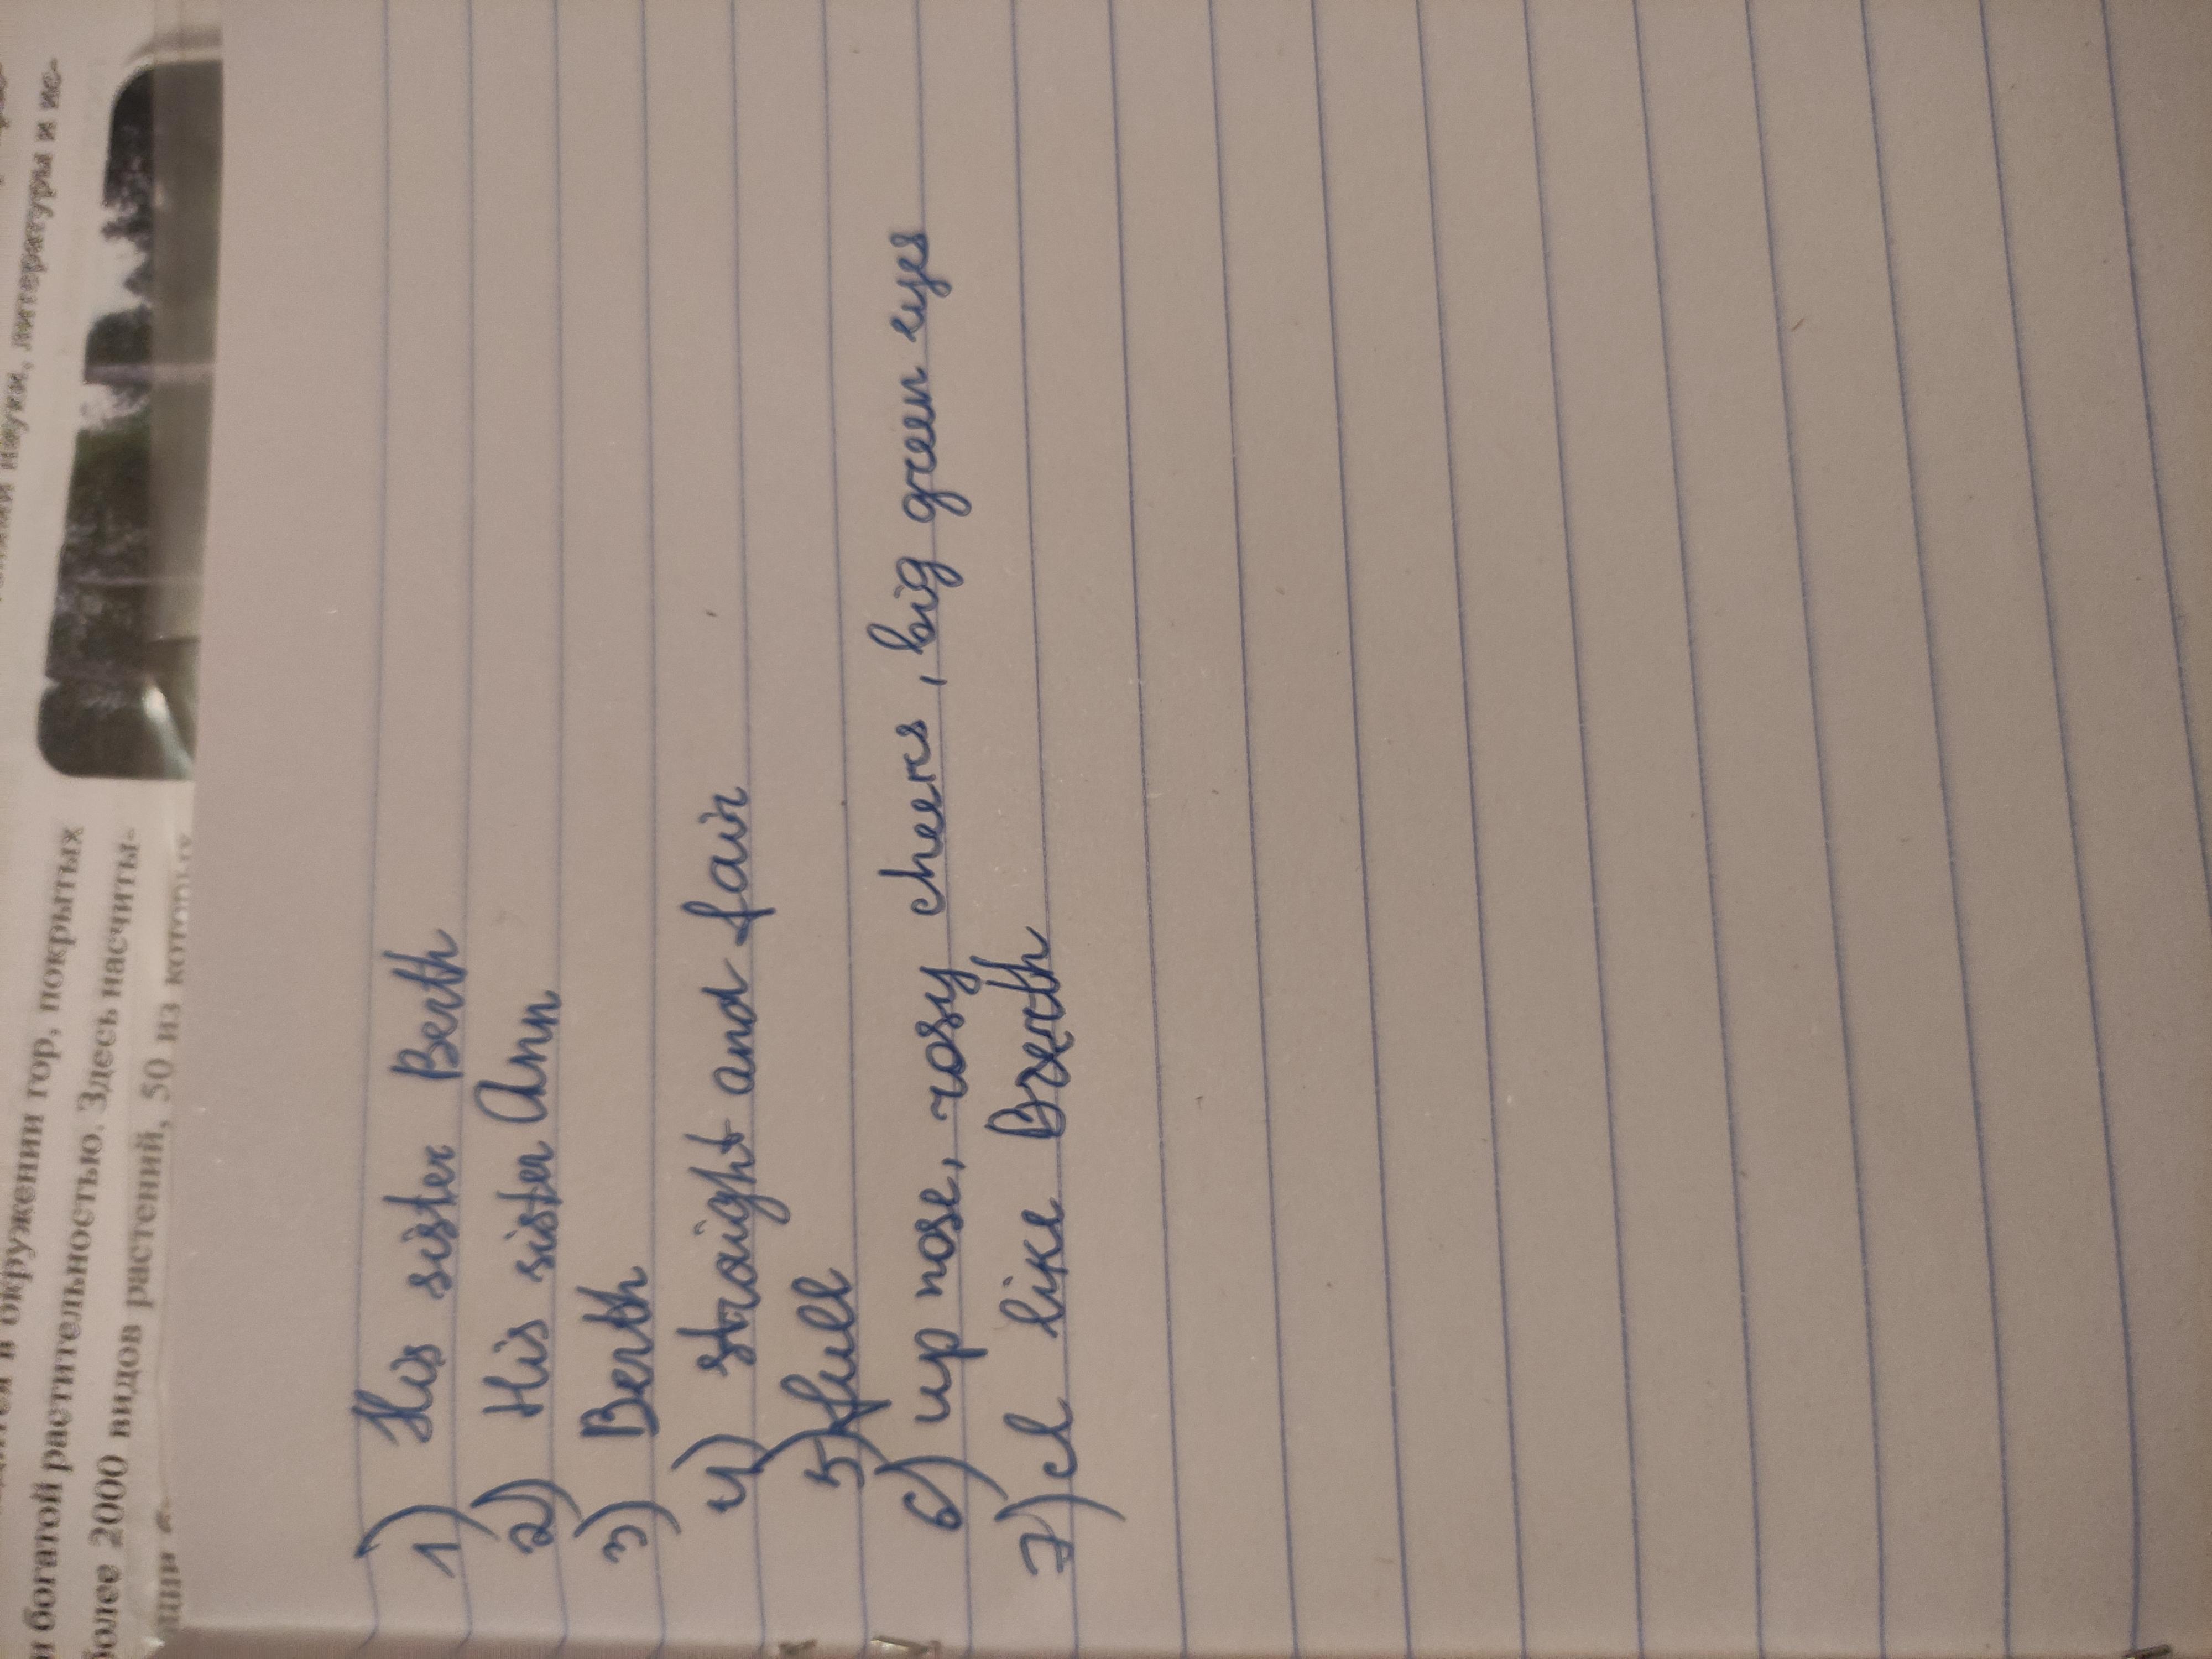 науки, литературы и ис-
в окружении гор, покрытых
и богатой растительностью. Здесь насчиты-
более 2000 видов растений, 50 из которых
1) His sister Berth
2) His sister Ann
3) Berth
4) straight and fair
5) full
6) up nose, rosy cheeks, big green eyes
7) I like Berth